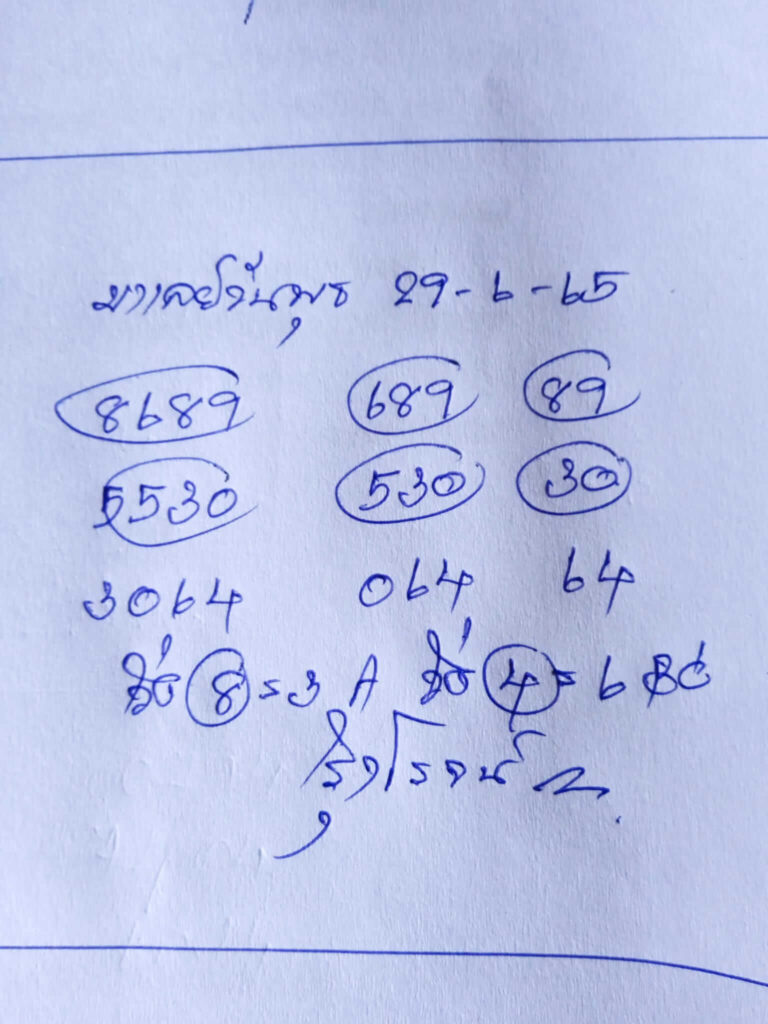 มาเลย์วันพุธ 29-6-65
8689 689 89
5530 530 30
3064 064 64
8 = 3 A 4 = 6 BC
รุ่งโรจน์